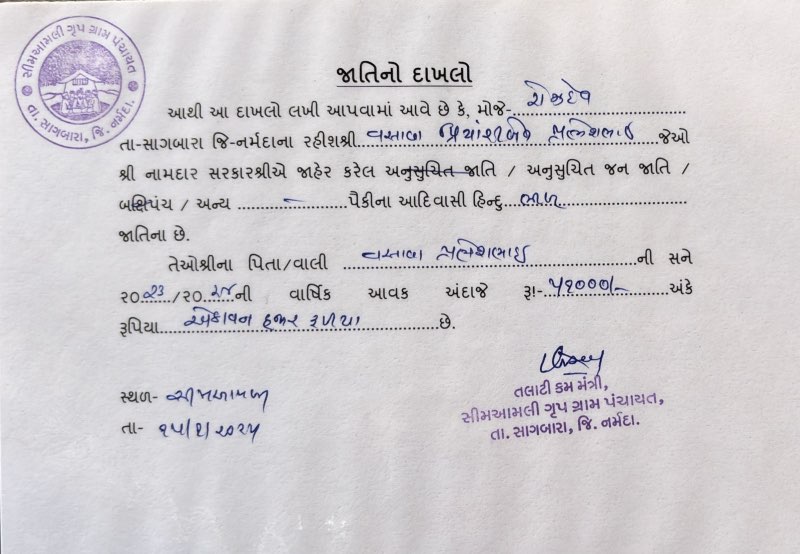 સીમઆમલી ગૃપ ગ્રામ પંચાયત
તા. સાગબારા, જિ. નર્મદા.
જાતિનો દાખલો
આથી આ દાખલો લખી આપવામાં આવે છે કે, મોજે-
તા-સાગબારા જિ-નર્મદાના રહીશશ્રી વસાવા પ્રિયાંશીબેન જેઓ
શ્રી નામદાર સરકારશ્રીએ જાહેર કરેલ અનુસુચિત જાતિ / અનુસુચિત જન જાતિ /
બક્ષિપંચ / અન્ય - પૈકીના આદિવાસી હિન્દુ ભીલ
જાતિના છે.
તેઓશ્રીના પિતા/વાલી વસાવા ની સને
૨૦૨૩/૨૦૨૪ની વાર્ષિક આવક અંદાજે રૂા-૫૧૦૦૦/- અંકે
રૂપિયા એકાવન હજાર રૂપીયા છે.
સ્થળ- સીમઆમલી
તા- ૧૫/૬/૨૦૨૫
તલાટી કમ મંત્રી,
સીમઆમલી ગૃપ ગ્રામ પંચાયત,
તા. સાગબારા, જિ. નર્મદા.